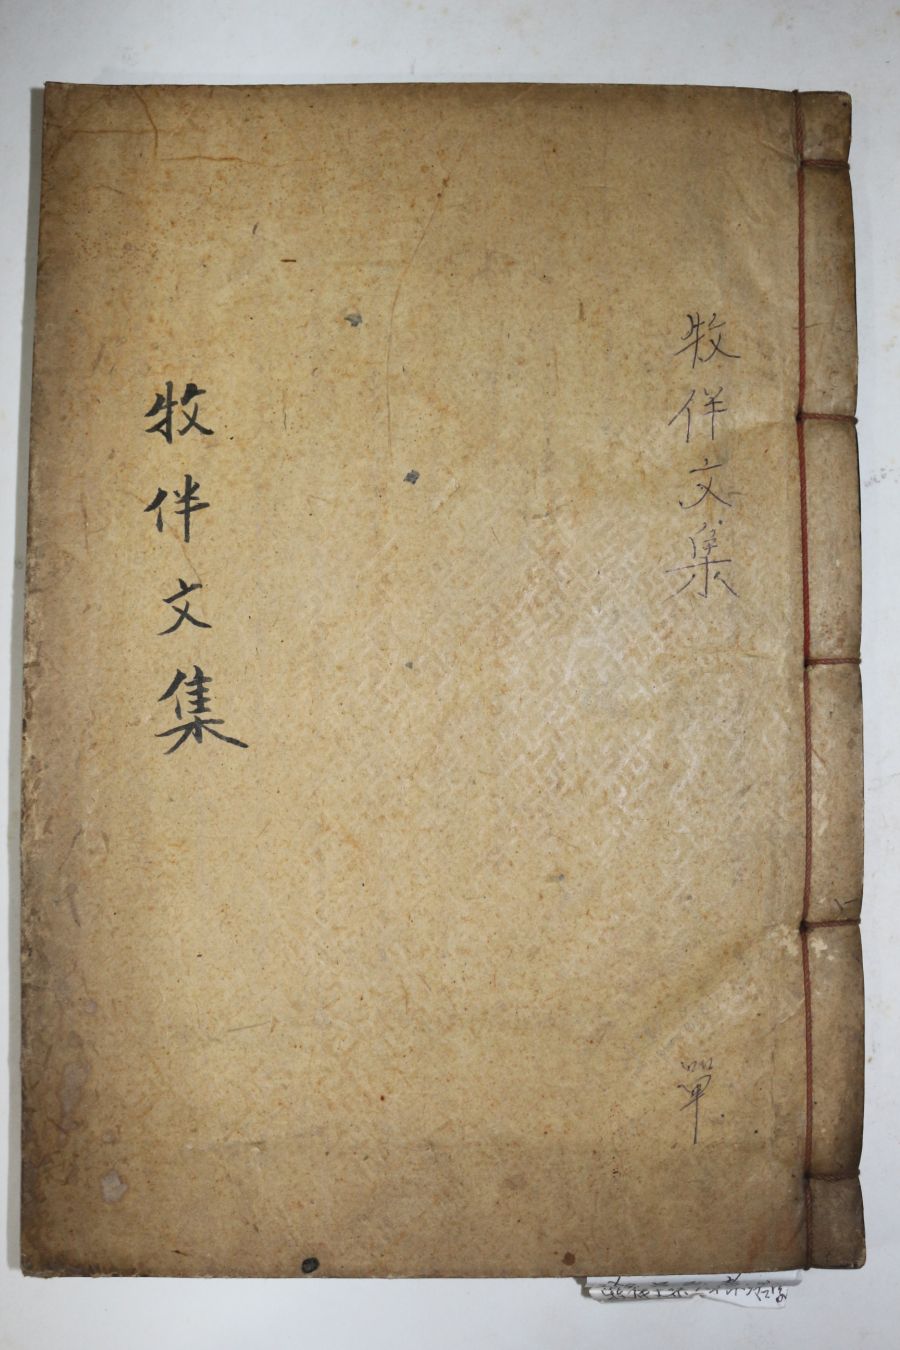 牧伴文集
單
牧伴文集